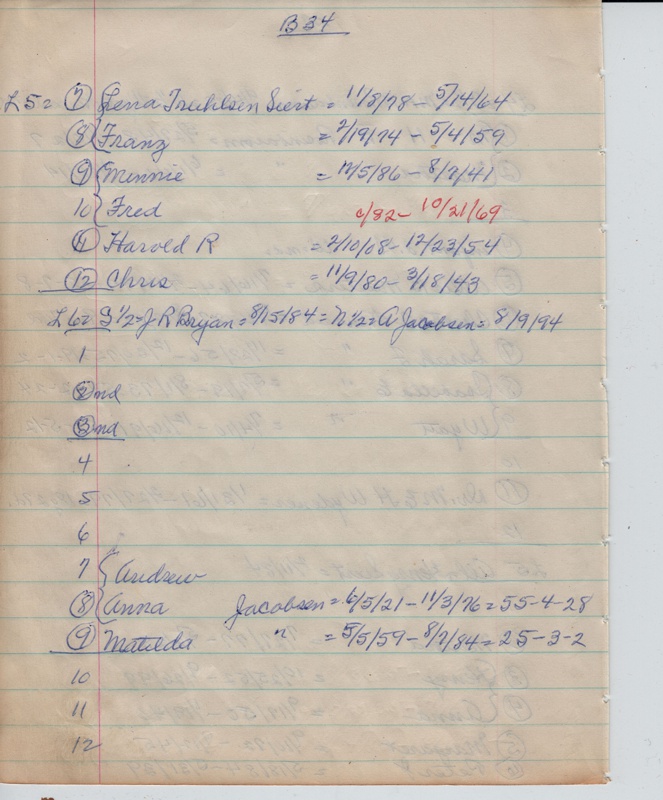 B 34
L 5 = (7) Lena Truhlsen Siert = 11/8/78 - 5/14/64
(8) { Franz = 2/19/74 - 5/4/59
(9) { Minnie = 12/5/86 - 8/7/41
10 { Fred c/82 - 10/21/69
(11) Harold R = 2/10/08 - 12/23/54
(12) Chris = 11/9/80 - 3/18/43
L 6 = S 1/2 = J R Bryan = 8/15/84 = N 1/2 = A Jacobsen = 8/9/94
1
(2) nd
(3) nd
4
5
6
7 { Andrew
(8) { Anna Jacobsen = 6/5/21 - 11/3/76 = 55-4-28
(9) Matilda " = 5/5/59 - 8/7/84 = 25-3-2
10
11
12